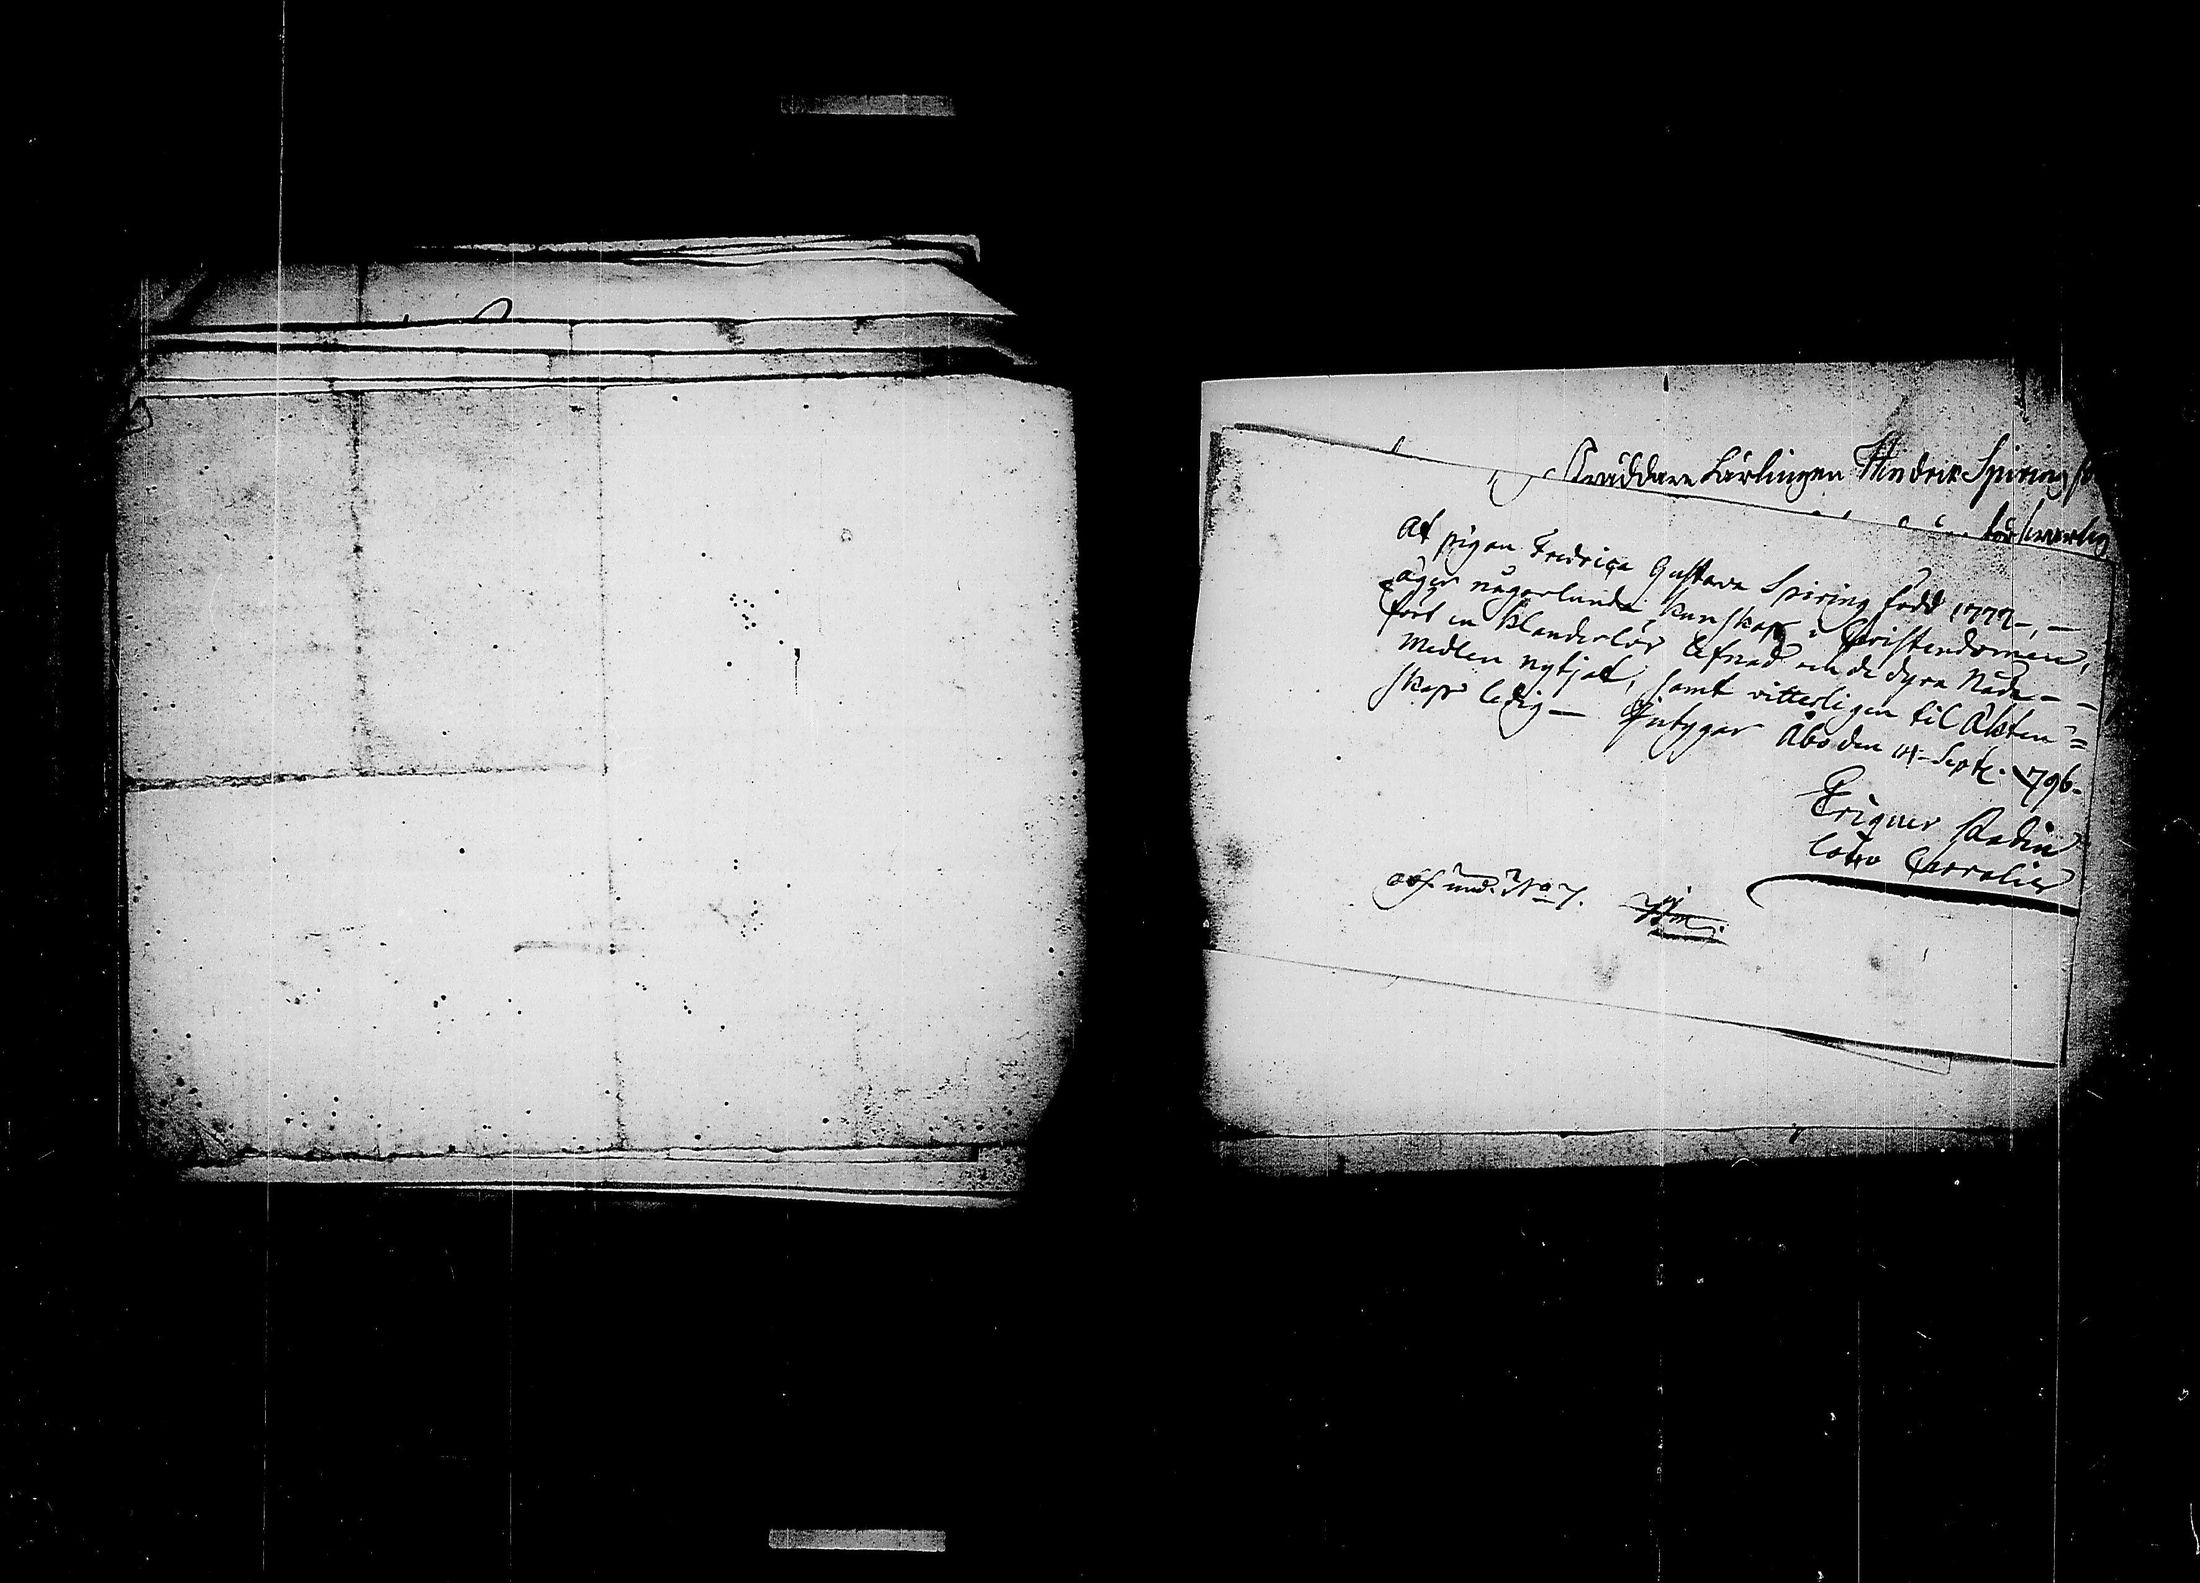 Skräddare Lärlingen Hendric Spiring
At pigan Fredrica Gustava Spiring född 1777-, —
äger någorlunda kunskap i Christendomen,
fört en klanderlös lefnad och de dyra Nåde- -
medlen nytjat, samt vitterligen til Äkten=
skap ledig — Intygar Åbo den 14 Septb. 1796-
loco
Obs. und. No 7.